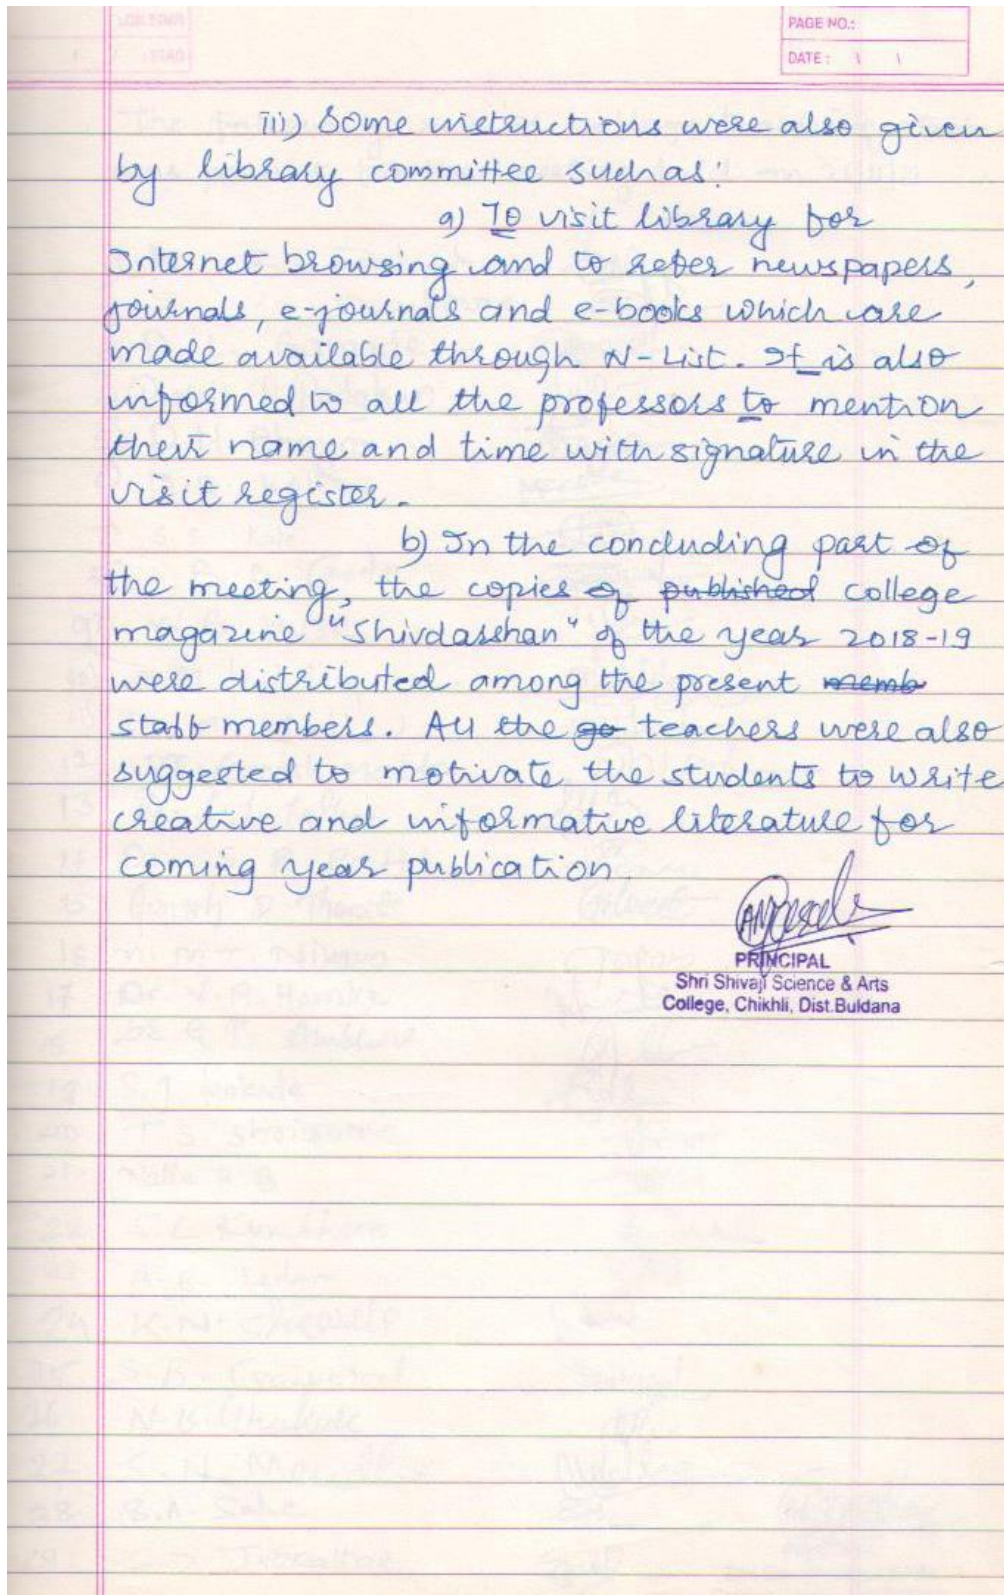 PAGE NO.:
DATE: \ \
iii) Some instructions were also given
by library committee such as:
a) To visit library for
Internet browsing and to refer newspapers,
journals, e-journals and e-books which are
made available through N-List. It is also
informed to all the professors to mention
their name and time with signature in the
visit register.
b) In the concluding part of
the meeting, the copies of published college
magazine "Shivdarshan" of the year 2018-19
were distributed among the present memb
staff members. All the go teachers were also
suggested to motivate the students to write
creative and informative literature for
coming year publication.
PRINCIPAL
Shri Shivaji Science & Arts
College, Chikhli, Dist.Buldana